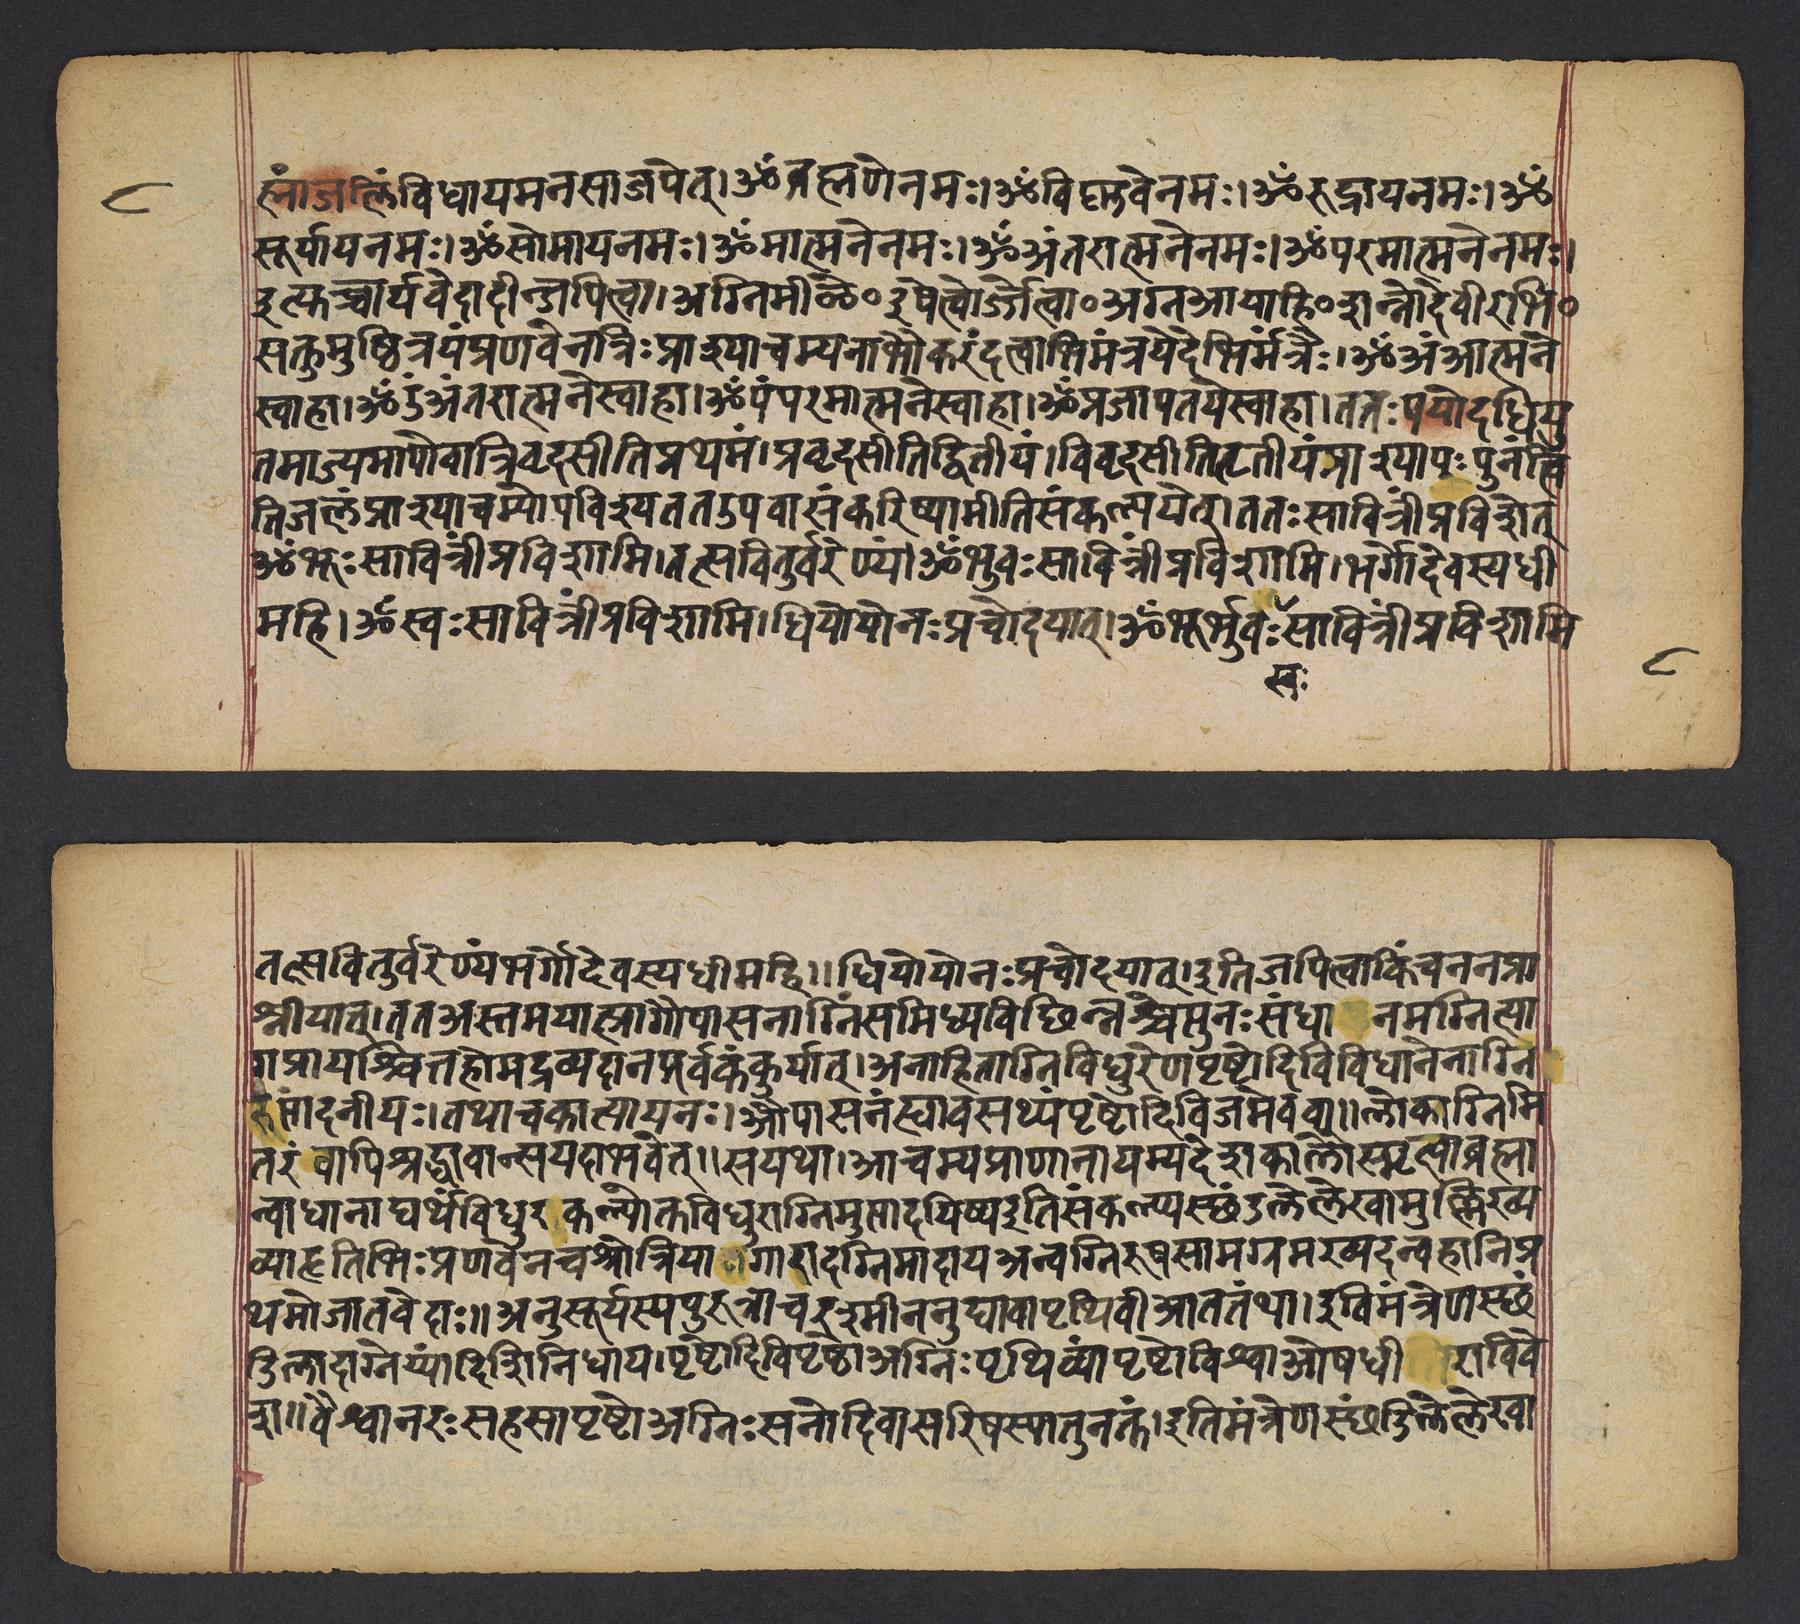 ह्मांजलिंविधायमनसाजपेत्।ॐब्रह्मणेनमः।ॐविष्णवेनमः।ॐरुद्रायनमः।ॐ
८
सूर्यायनमः।ॐसोमायनमः।ॐमात्मनेनमः।ॐअंतरात्मनेनमः।ॐपरमात्मनेनमः।
इत्युच्चार्यवेदादीन्जपित्वा।अग्निमीळे०इषेत्वोर्जेत्वा०अग्नआयाहि०शन्नोदेवीरभि०
सक्तुमुष्ठित्रयंप्रणवेनत्रिःप्राश्याचम्यनाभौकरंदत्वाभिमंत्रयेदेभिर्मंत्रैः।ॐअंआत्मने
स्वाहा।ॐउंअंतरात्मनेस्वाहा।ॐपंपरमात्मनेस्वाहा।ॐप्रजापतयेस्वाहा।ततःपयोदधियु
तमाज्यमापोवात्रिवृदसीतिप्रथमं।प्रवृदसीतिद्वितीयं।विवृदसीतितृतीयंप्राश्यापःपुनंत्वि
तिजलंप्राश्याचम्योपविश्यततउपवासंकरिष्यामीतिसंकल्पयेत्।ततःसावित्रींप्रविशेत्
ॐभूःसावित्रींप्रविशामि।तत्सवितुर्वरेण्यं।ॐभुवःसावित्रींप्रविशामि।भर्गोदेवस्यधी
महि।ॐस्वःसावित्रींप्रविशामि।धियोयोनःप्रचोदयात्।ॐभूर्भुवःसावित्रींप्रविशामि
स्वः
८
तत्सवितुर्वरेण्यंभर्गोदेवस्यधीमहि।।धियोयोनःप्रचोदयात्।इतिजपित्वाकिंचननप्रा
श्नीयात्।ततअस्तमयात्प्रागौपासनाग्निंसमिध्यविछिन्नश्चेत्पुनःसंधानमग्नित्या
गप्रायश्चित्तहोमद्रव्यदानपूर्वकंकुर्यात्।अनाहिताग्निविधुरेणपृष्टोदिविविधानेनाग्नि
रुत्पादनीयः।तथाचकात्यायनः।औपासनंह्यावसथ्यंपृष्टोदिविजमेववा।।लौकाग्निमि
तरंवापिश्रद्धावान्सयदाभवेत्।।सयथा।आचम्यप्राणानायम्यदेशकालौस्मृत्वाब्रह्मा
न्वाधानाद्यर्थंविधुरकल्पोक्तविधुराग्निमुत्पादयिष्यइतिसंकल्प्यस्छंडिलेलेखामुल्लिख्य
व्याहृतिभिःप्रणवेनचश्रोत्रियागारादग्निमादायअन्वग्निरुषसामग्रमख्यदन्वहानिप्र
थमोजातवेदाः॥अनुसूर्यस्यपुरुत्राचरश्मीननुद्यावापृथिवीआततंथ।इतिमंत्रेणस्छं
डिलादाग्नेय्यांदिशिनिधाय।पृष्टोदिविपृष्ठाअग्निःपृथिव्यांपृष्टोविश्वाओषधीराविवे
श॥वैश्वानरःसहसापृष्टोअग्निःसनोदिवासरिषस्पातुनक्तं।इतिमंत्रेणस्छंडिलेलेखा